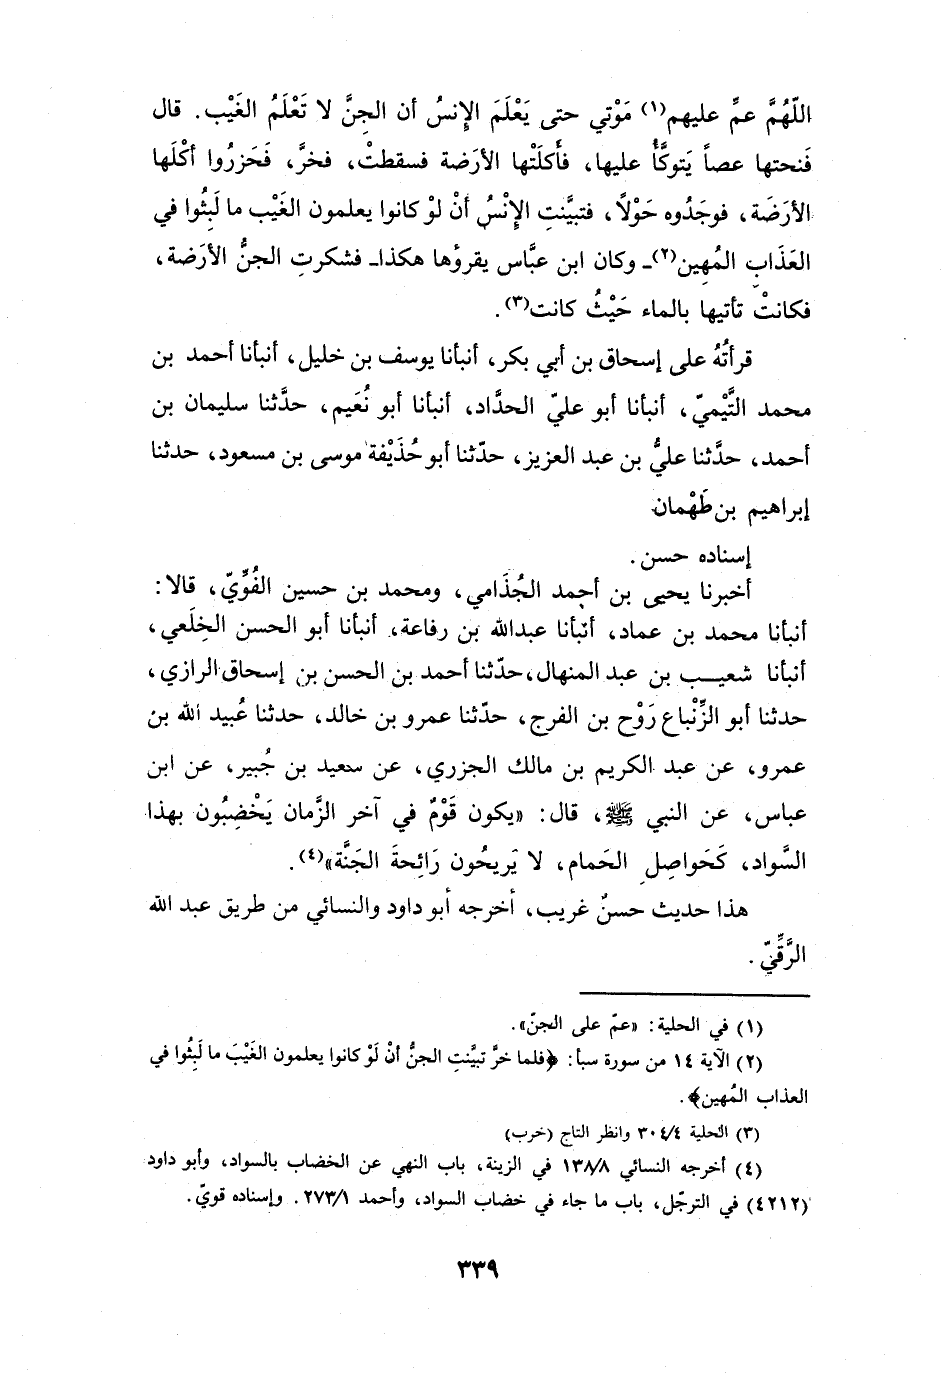 اللّهُمَّ عمِّ عليهم(١) مَوْتي حتى يَعْلَمَ الإِنسُ أن الجِنَّ لا تَعْلَمُ الغَيْب. قال
فَنحتها عصاً يَتوكَّأُ عليها، فأَكلَتْها الأرَضة فسقطتْ، فخرَّ، فَحَزرُوا أكْلَها
الأرَضَة، فوجَدُوه حَوْلًا، فتبيَّنتِ الإِنْسُ أنْ لوْ كانوا يعلمون الغَيْب ما لَبِثُوا في
العَذَابِ المُهِين(٢)ـ وكان ابن عبَّاس يقرؤها هكذاـ فشكرتِ الجنُّ الأرَضة،
فكانتْ تأتيها بالماء حَيْثُ كانت(٣).
قرأتُهُ على إسحاق بن أبي بكر، أنبأنا يوسف بن خليل، أنبأنا أحمد بن
محمد التَّيْميّ، أنبأنا أبو عليّ الحدَّاد، أنبأنا أبو نُعَيم، حدَّثنا سليمان بن
أحمد، حدَّثنا عليُّ بن عبد العزيز، حدّثنا أبو حُذَيْفة موسى بن مسعود، حدثنا
إبراهيم بن طَهْمان
إسناده حسن.
أخبرنا يحيى بن أحمد الجُذَامي، ومحمد بن حسين الفُوِّيّ، قالا:
أنبأنا محمد بن عماد، أنبأنا عبدالله بن رفاعة، أنبأنا أبو الحسن الخِلَعي،
أنبأنا شعيب بن عبد المنهال، حدّثنا أحمد بن الحسن بن إسحاق الرازي،
حدثنا أبو الزِّنْباع رَوْح بن الفرج، حدّثنا عمرو بن خالد، حدثنا عُبيد الله بن
عمرو، عن عبد الكريم بن مالك الجزري، عن سعيد بن جُبير، عن ابن
عباس، عن النبي ﷺ، قال: «يكون قَوْمٌ في آخر الزَّمان يَخْضِبُون بهذا
السَّواد، كَحَواصِلِ الحَمام، لا يَريحُون رَائِحةَ الجَنَّة»(٤).
هذا حديث حسنٌ غريب، أخرجه أبو داود والنسائي من طريق عبد الله
الرَّقِّيّ.
(١) في الحلية: «عمّ على الجنّ».
(٢) الآية ١٤ من سورة سبأ: ﴿فلما خرَّ تبيَّنتِ الجنُّ أنْ لَوْ كانوا يعلمون الغَيْبَ ما لَبِثُوا في
العذاب المُهين﴾.
(٣) الحلية ٣٠٤/٤ وانظر التاج (خرب)
(٤) أخرجه النسائي ١٣٨/٨ في الزينة، باب النهي عن الخضاب بالسواد، وأبو داود
(٤٢١٢) في الترجّل، باب ما جاء في خضاب السواد، وأحمد ٢٧٣/١. وإسناده قويّ.
٣٣٩